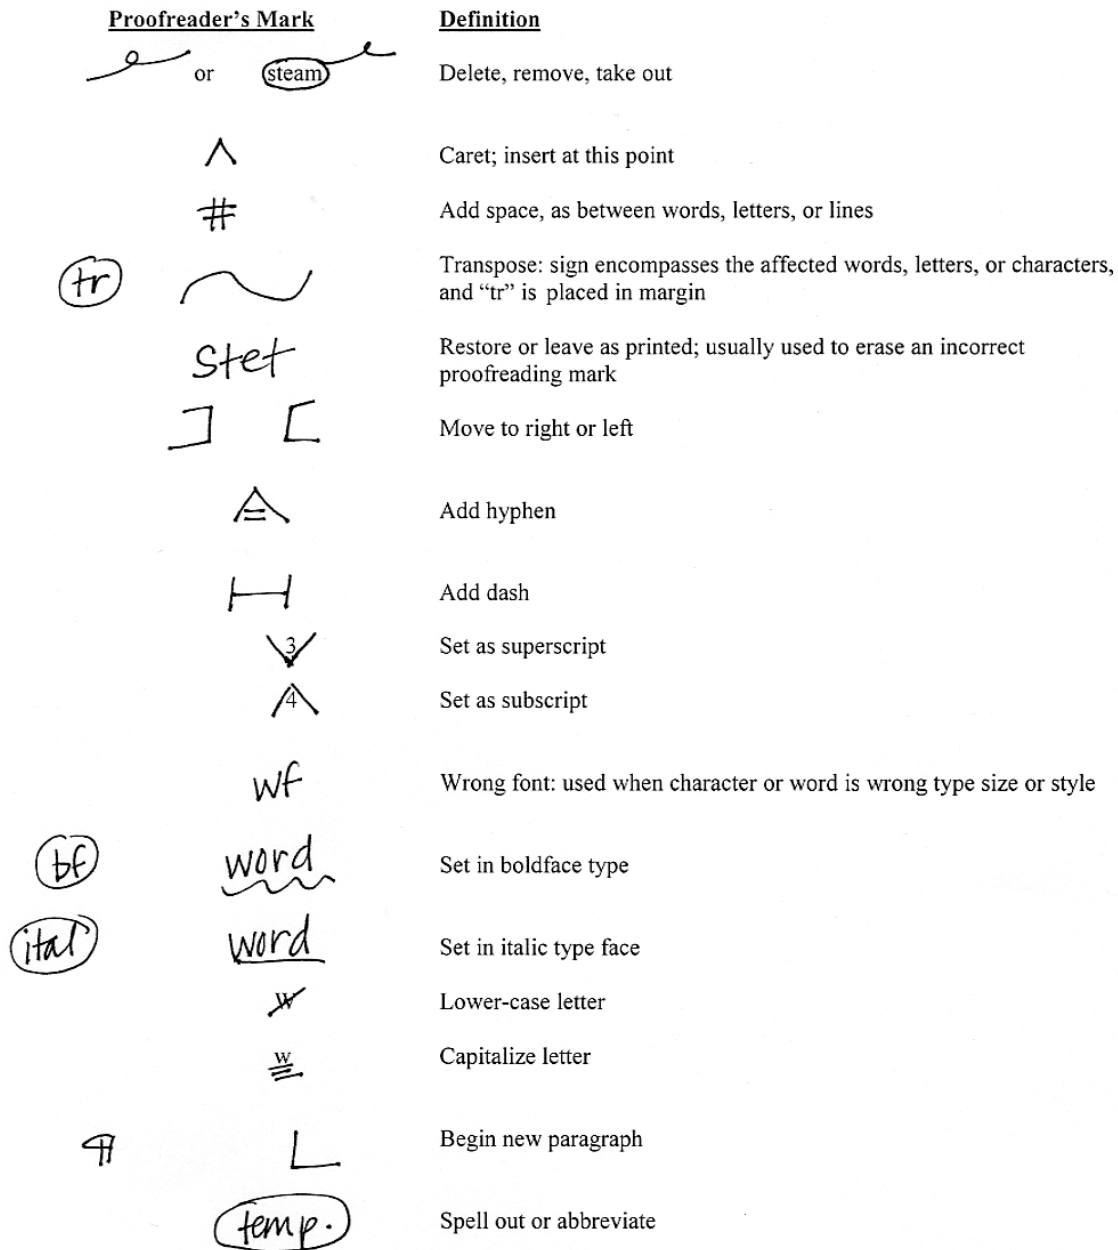 Proofreader's Mark Definition
or steam Delete, remove, take out
^ Caret; insert at this point
# Add space, as between words, letters, or lines
tr Transpose: sign encompasses the affected words, letters, or characters,
and “tr” is placed in margin
stet Restore or leave as printed; usually used to erase an incorrect
proofreading mark
] [ Move to right or left
Add hyphen
Add dash
3 Set as superscript
4 Set as subscript
wf Wrong font: used when character or word is wrong type size or style
bf word Set in boldface type
ital word Set in italic type face
w Lower-case letter
w Capitalize letter
¶ L Begin new paragraph
temp. Spell out or abbreviate